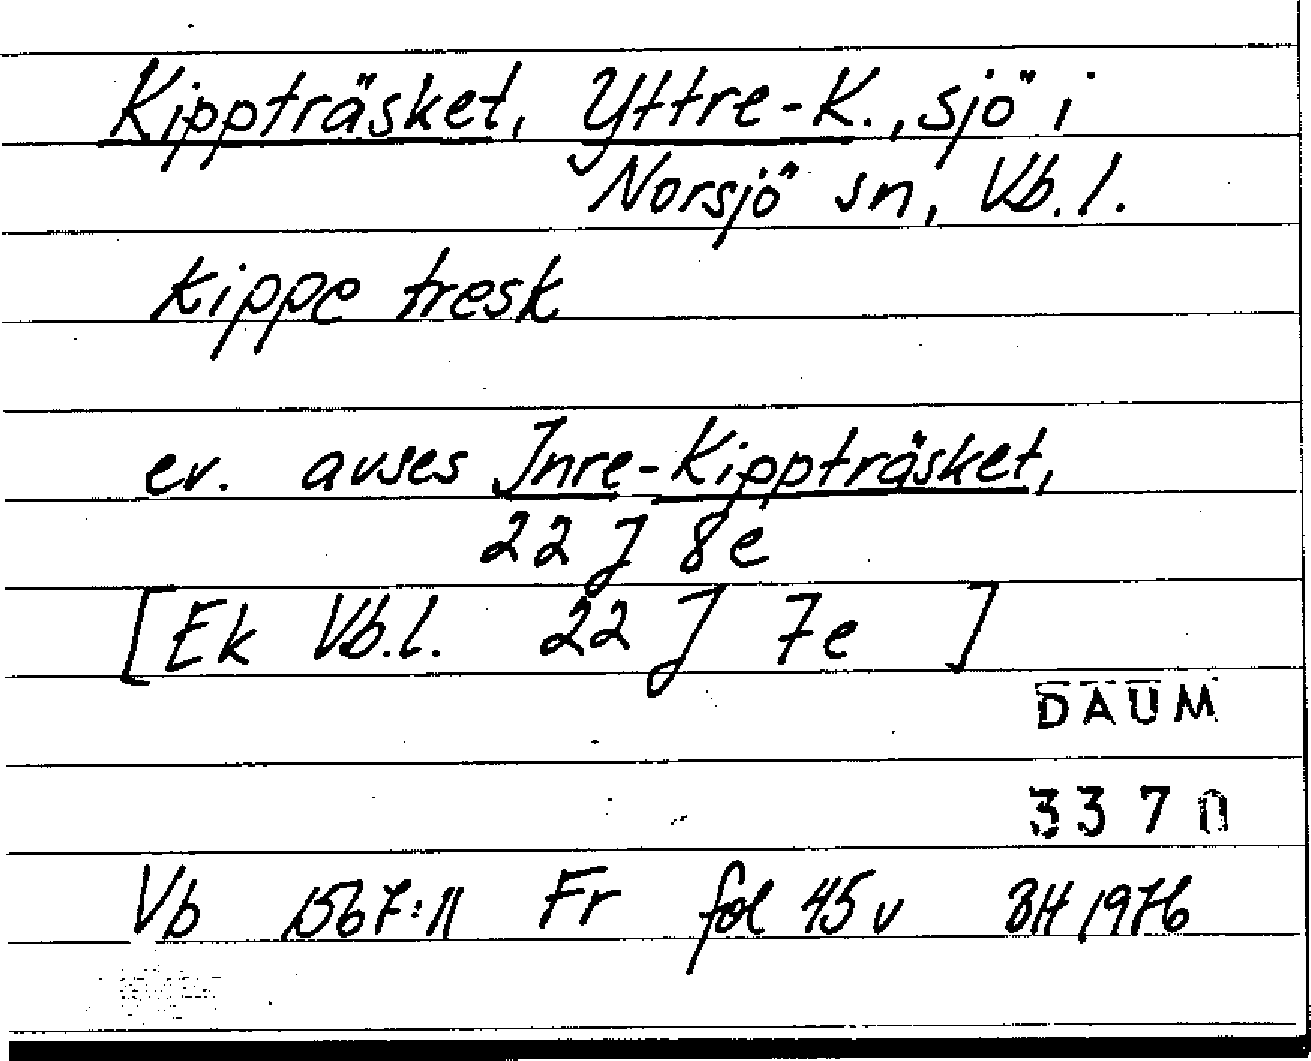 Kippträsket, Yttre-K., sjö i
Norsjö sn, Vb.l.
kippe tresk
ev. avses Inre-Kippträsket,
22 J 8e
[Ek Vb.l. 22 J 7e ]
DAUM
3370
Vb 1567:11 Fr fol 45 v BH 1976